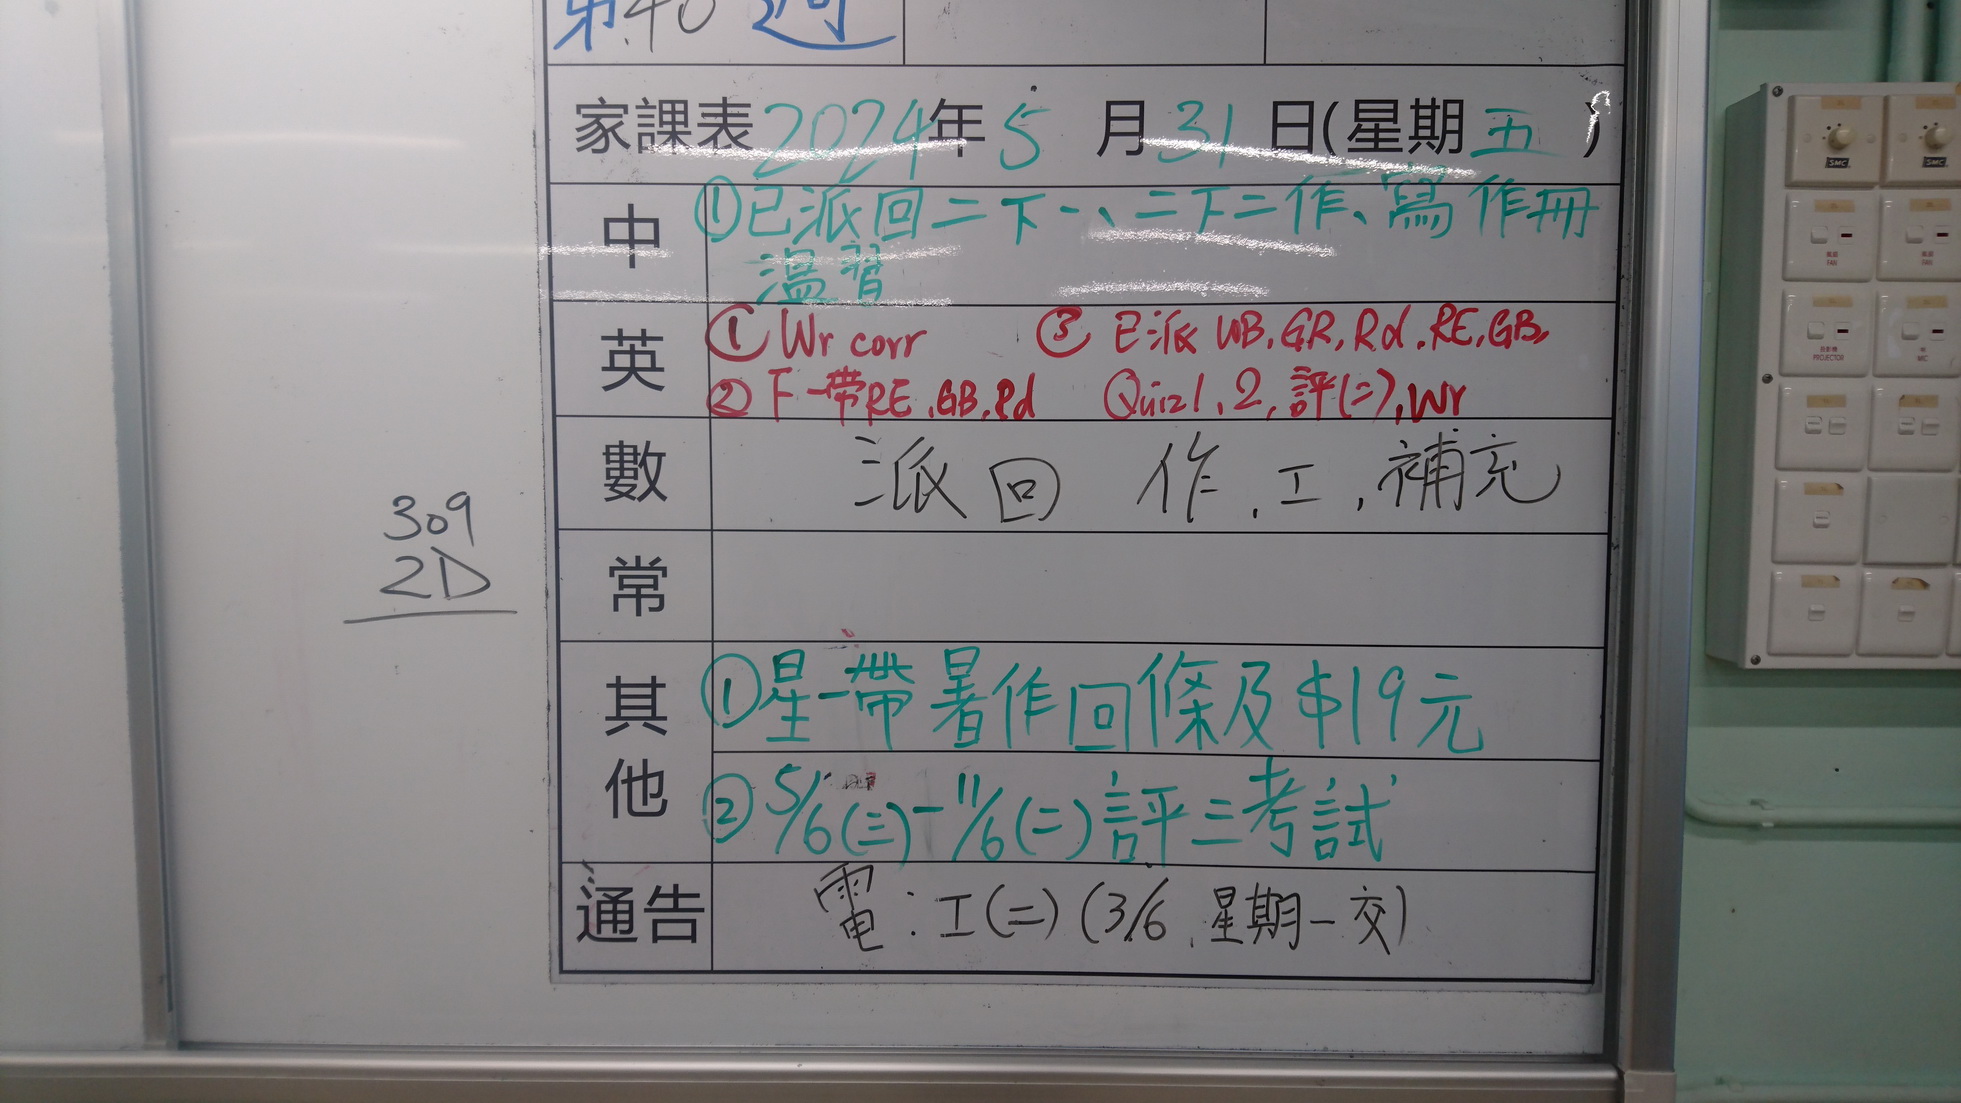 第40週
家課表2024年5月31日(星期五)
中
①已派回二下一、二下二作、寫作冊
溫習
英
① Wr corr
② 下一帶RE,GB,Rd
③ 已派 WB,GR,Rd,RE,GB,
Quiz1,2,評(二),Wr
數
派回 作,工,補充
常
其他
①星一帶暑作回條及$19元
②5/6(三)-11/6(二)評三考試
通告
電:工(二)(3/6,星期一交)
309
2D
SMC
SMC
FAN
FAN
PROJECTOR
MIC